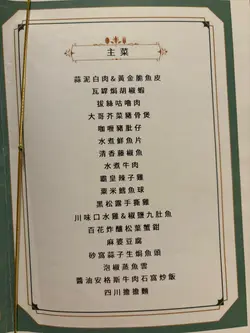 主菜
蒜泥白肉&黃金脆魚皮
瓦罉焗胡椒蝦
拔絲咕嚕肉
大哥芥菜豬骨煲
咖喱豬肚仔
水煮鮮魚片
清香藤椒魚
水煮牛肉
霸皇辣子雞
粟米鱈魚球
黑松露手撕雞
川味口水雞&椒鹽九肚魚
百花炸釀松葉蟹鉗
麻婆豆腐
砂窩蒜子生焗魚頭
泡椒蒸魚雲
醬油安格斯牛肉石窩炒飯
四川擔擔麵